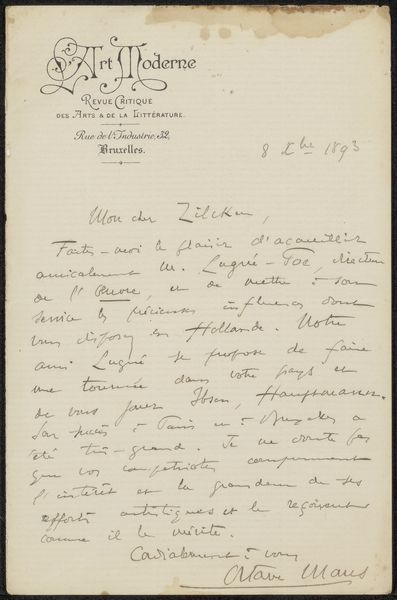 L'Art Moderne
REVUE CRITIQUE
DES ARTS & DE LA LITTÉRATURE.
Rue de l'Industrie, 32,
Bruxelles.
8 Xbre 1893
Mon cher Zilcken,
Faites-moi le plaisir d'accueillir
amicalement M. Lugné-Poe, directeur
de l'Œuvre, et de mettre à son
service les précieuses influences dont
vous disposez en Hollande. Notre
ami Lugné se propose de faire
une tournée dans votre pays et
de vous jouer Ibsen, Hauptmann.
Son succès à Paris et à Bruxelles a
été très-grand. Je ne doute pas
que vos compatriotes comprennent
l'intérêt et la grandeur de ses
efforts artistiques et le reçoivent
comme il le mérite.
Cordialement à vous
Octave Maus